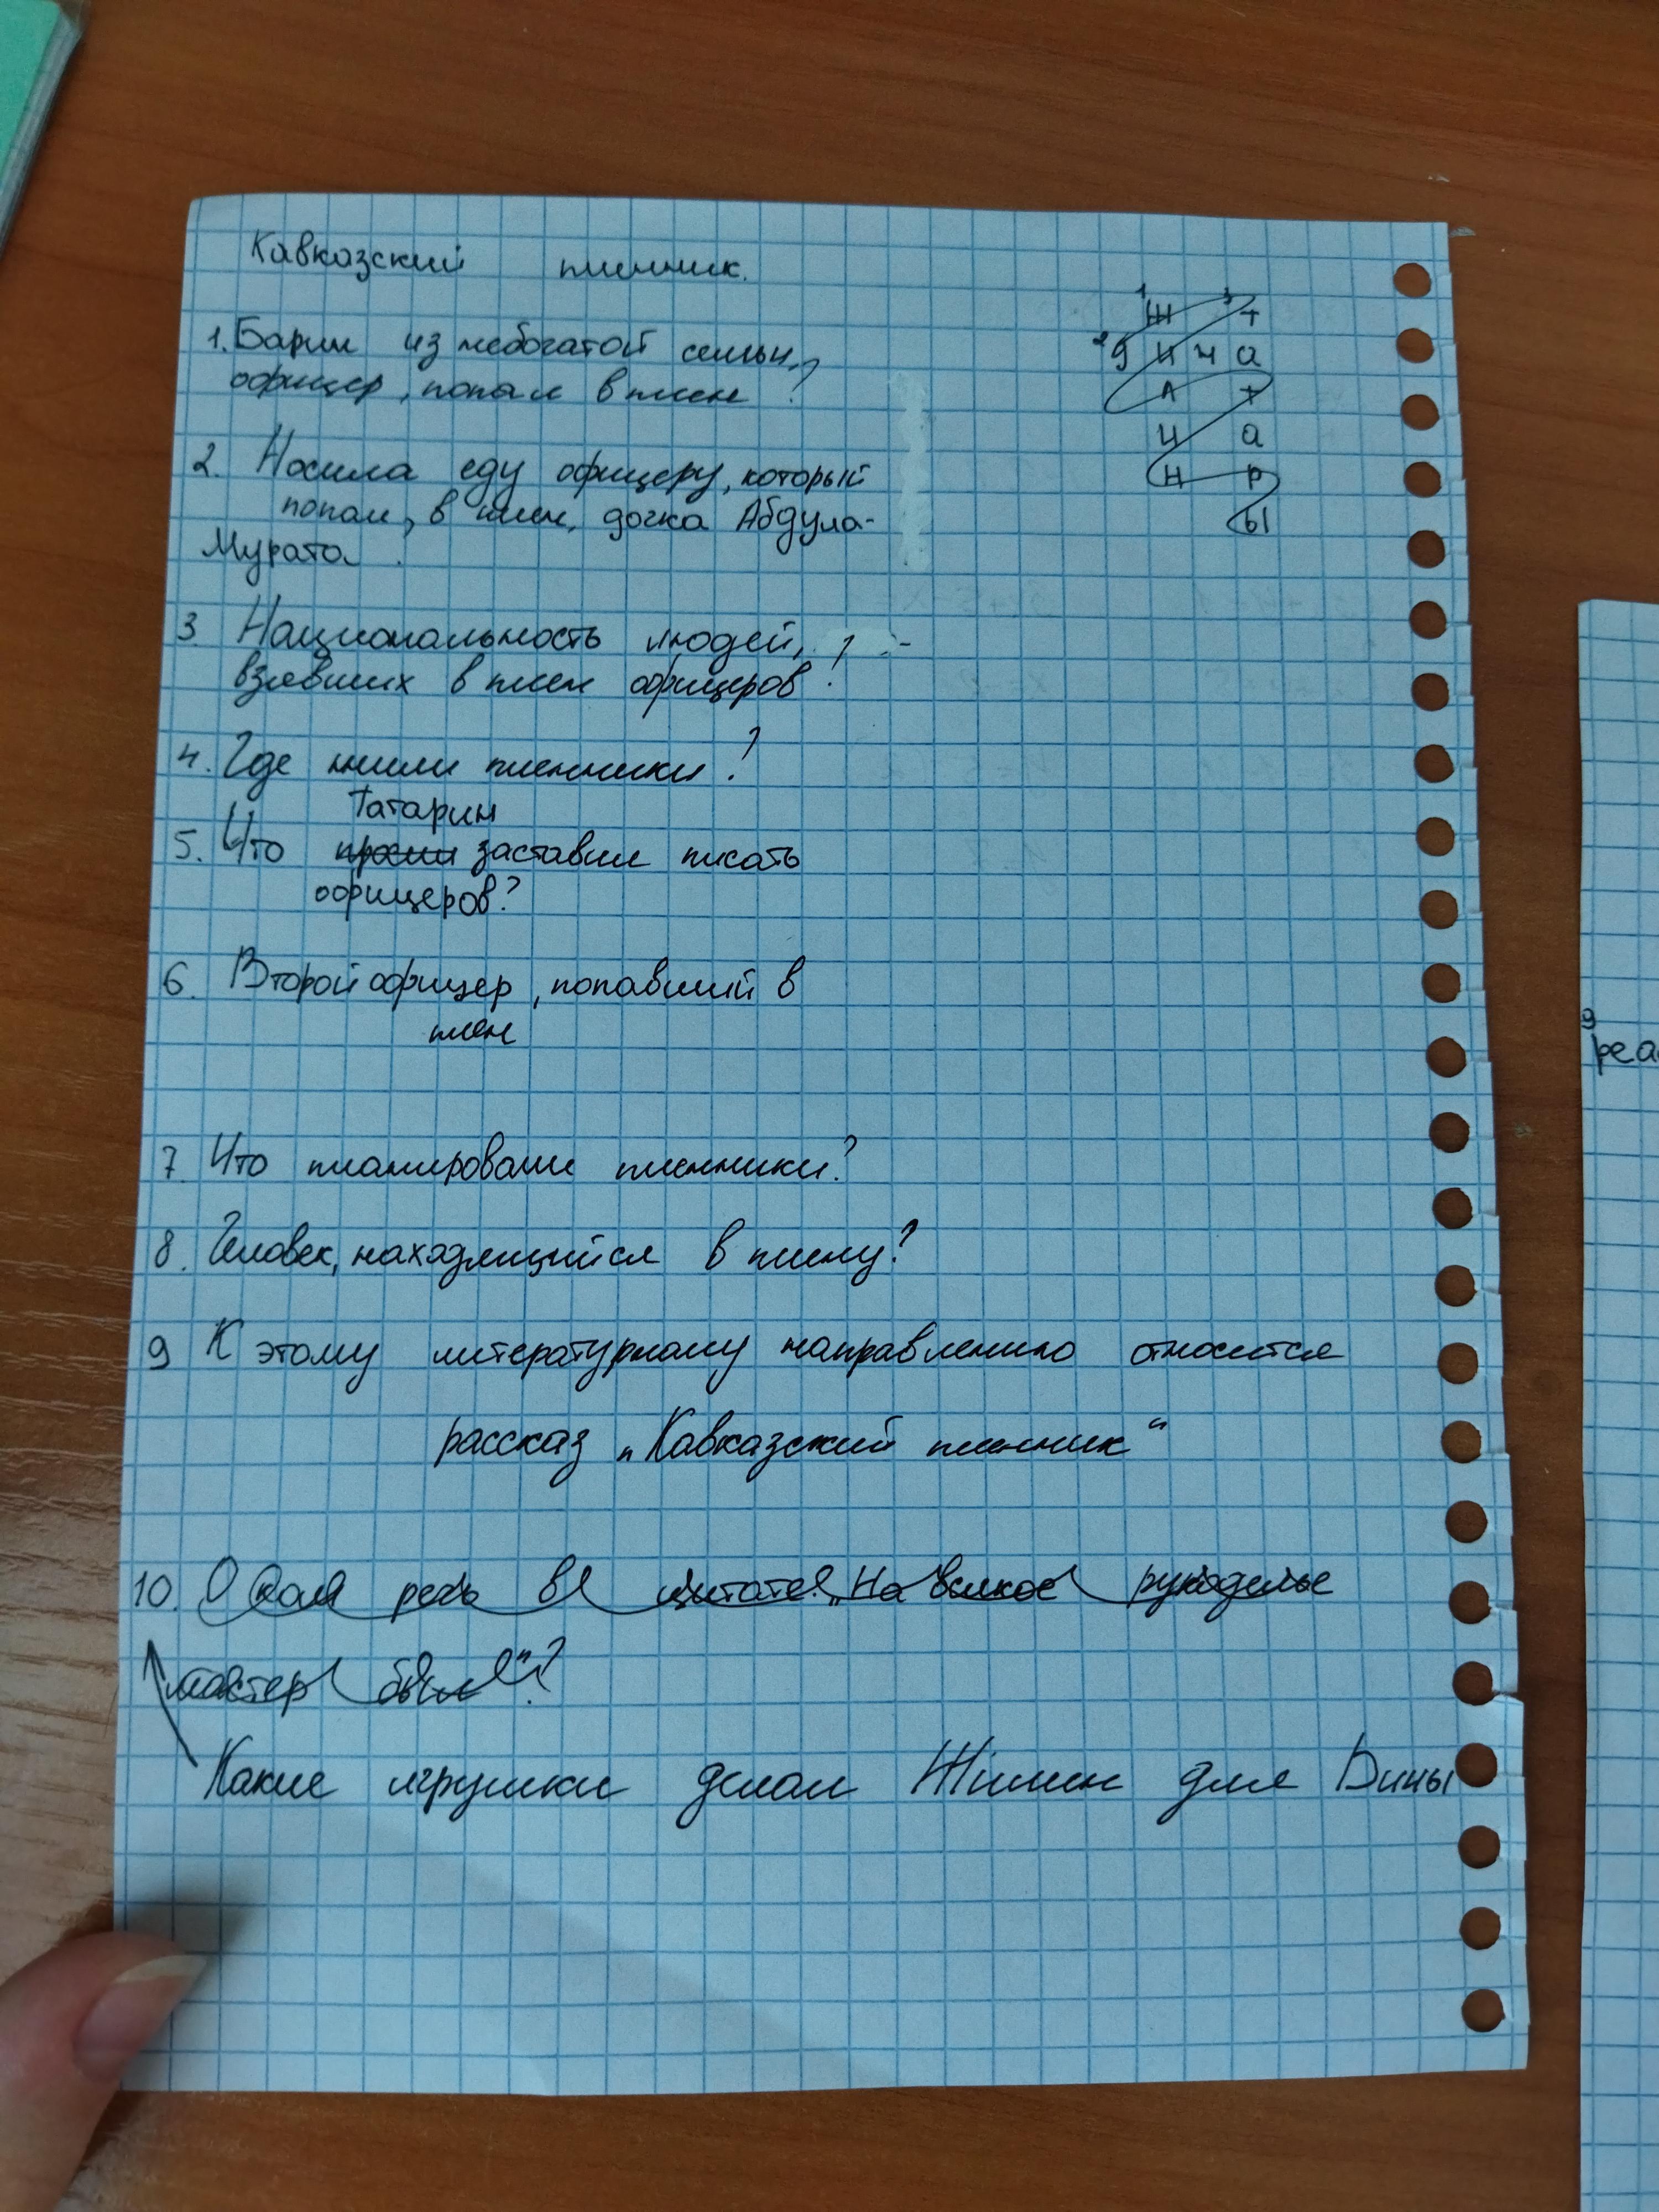 Кавказский пленник.
1. Барин из небогатой семьи,
офицер, попал в плен ?
2. Носила еду офицеру, который
попал, в плен, дочка Абдула-
Мурата.
3 Национальность людей,
взявших в плен офицеров ?
4. Где жили пленники ?
Татарин
5. Что просил заставил писать
офицеров?
6. Второй офицер, попавший в
плен
7. Что планировали пленники?
8. Человек, находящийся в плену?
9 К этому литературному направлению относится
рассказ „Кавказский пленник“
10. О ком речь в цитате „На всякое рукоделье
мастер был“?
Какие игрушки делал Жилин для Дины
1 3
Ж т
2 д и н а
л т
и а
н р
ы
9
реа